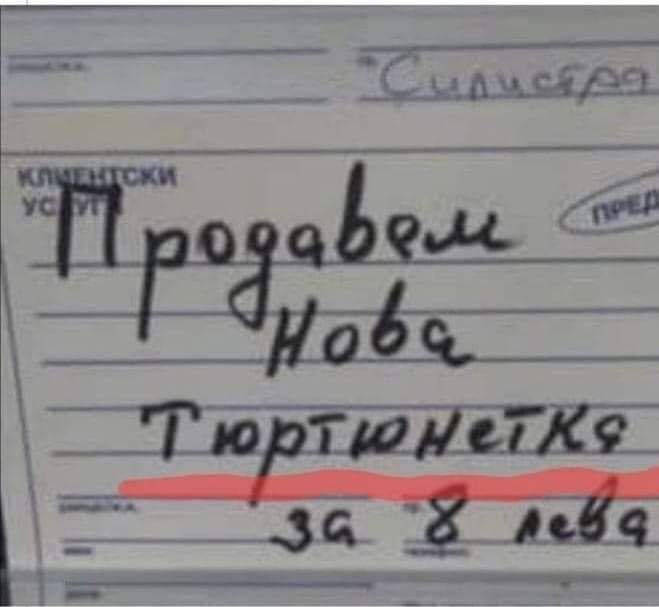 Силистра
КЛИЕНТСКИ
УСЛУГИ
ПРЕД
Продавем
нова
Тюртюнетка
за 8 лева